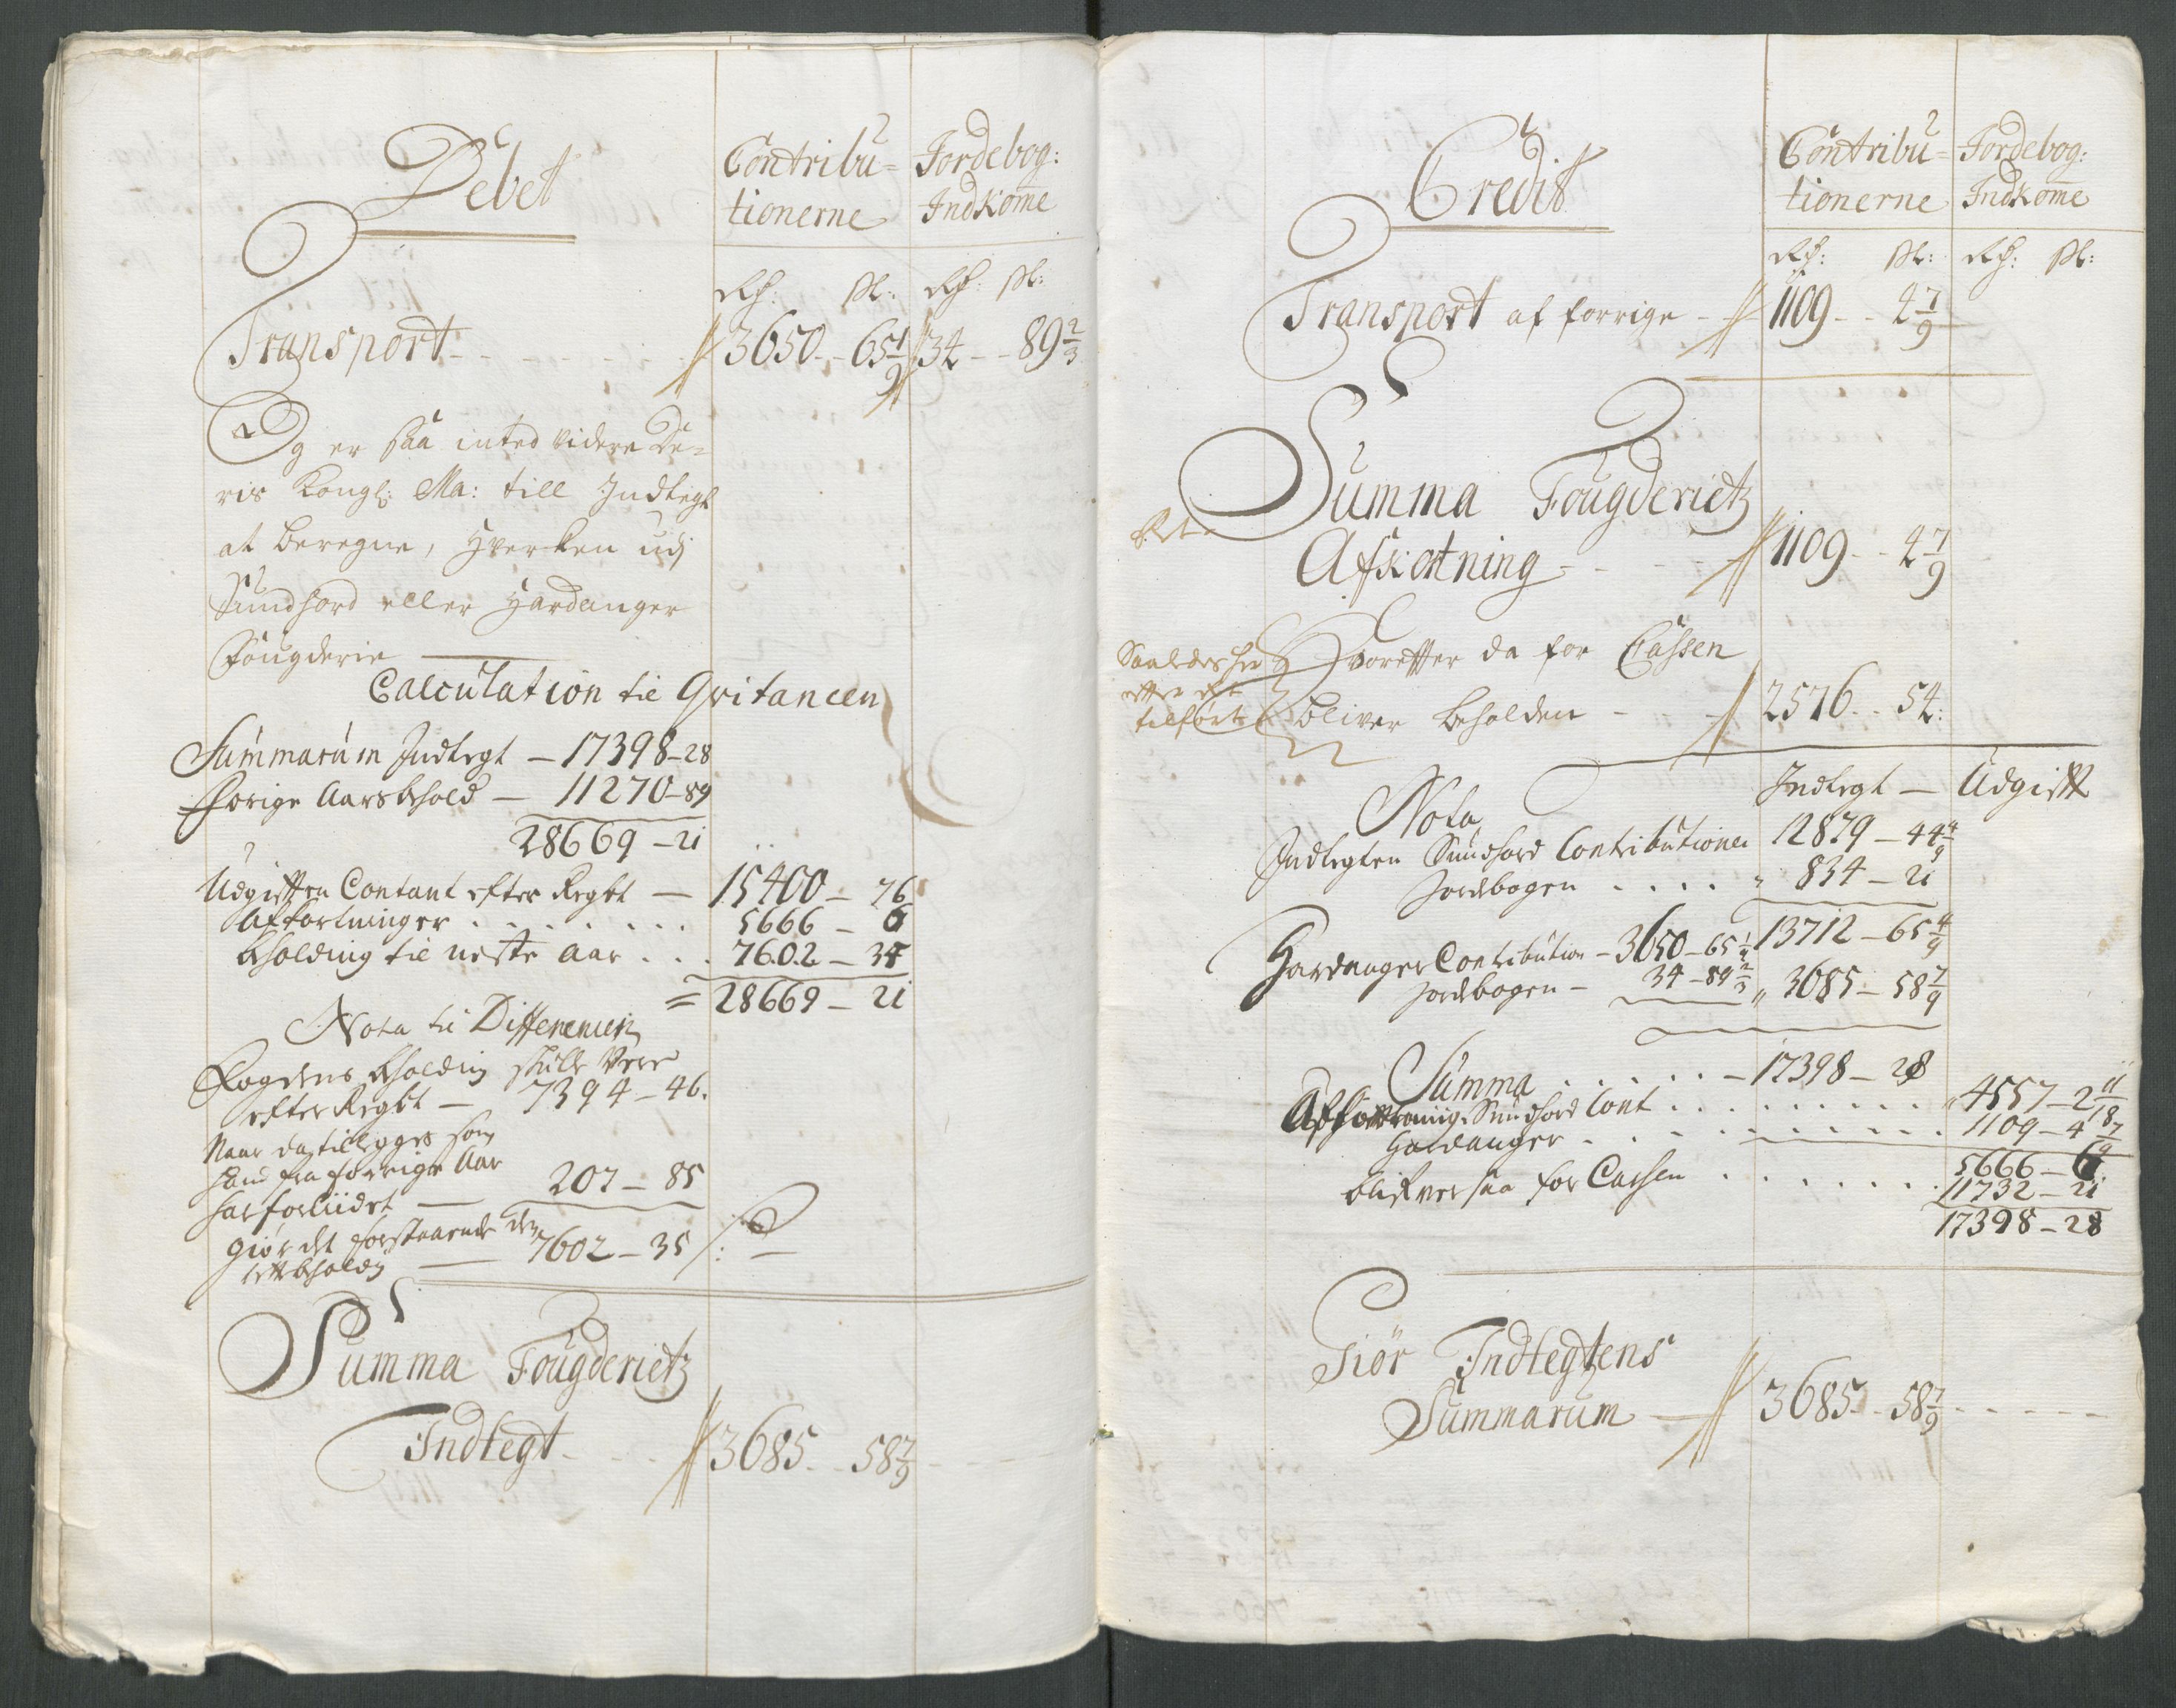 Debet
Contribu-
tionerne
Jordebog:
Indkom̄e
Rd: ſk: Rd: ſk:
Transport - - - 3650 - 65 1/9 34 - 89 2/3
Og er saa inted videre De-
ris Kongl: Ma: till Indtegt
at beregne, Hverken udj
Sundhord eller Hardanger
Fougderie
Calculation til Qvitancen
Summarum Indtegt — 17398 - 28
Forrige Aars behold — 11270 - 89
28669 - 21
Udgifften Contant efter Regbt — 15400 - 76
Affkortninger . . . . . . 5666 - 6
beholding til neste Aar . . . 7602 - 35
= 28669 - 21
Nota til Differencen
Fogdens beholding skulle Vere
efter Regbt — 7394 - 46.
Naar da tillegges som
hand fra forrige Aar
har forliidet — 207 - 85
giør det forstaaende den
rette beholdg — 7602 - 35
Summa Fougderietz
Indtegt - - - 3685 - 58 7/9
Credit
Contribu-
tionerne
Jordebog:
Indkom̄e
Rd: ſk: Rd: ſk:
Transport af forrige - - 1109 - - 4 7/9
Summa Fougderietz
Afkortning - - - 1109 - - 4 7/9
Hvorefter da for Cassen
bliver beholden - - 2576 - - 54:
Nota
Indtegt — Udgifft
Indtegten Sundhord Contributioner 12879 - 44 4/9
Jordbogen . . . . " 834 - 21
13712 - 65 4/9
Hardanger Contribution - 3650 - 65 1/9
Jordbogen - 34 - 89 2/3 " 3685 - 58 7/9
Summa . . . . - 17398 - 28
Affkortning Sundhord Cont . . . . . . . 4557 - 2 11/18
Hardanger . . . . . . . . 1109 - 4 7/9
5666 - 6
blifver saa for Cassen . . . . . . . 11732 - 21
17398 - 28
Giør Indtegtens
Summarum — 3685 - - 58 7/9